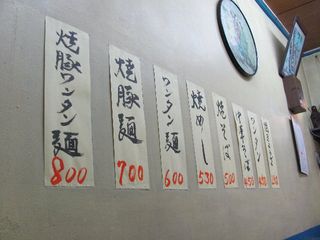 焼豚ワンタン麺
800
焼豚麺
700
ワンタン麺
600
焼めし
530
焼そば
500
450
ワンタン
450